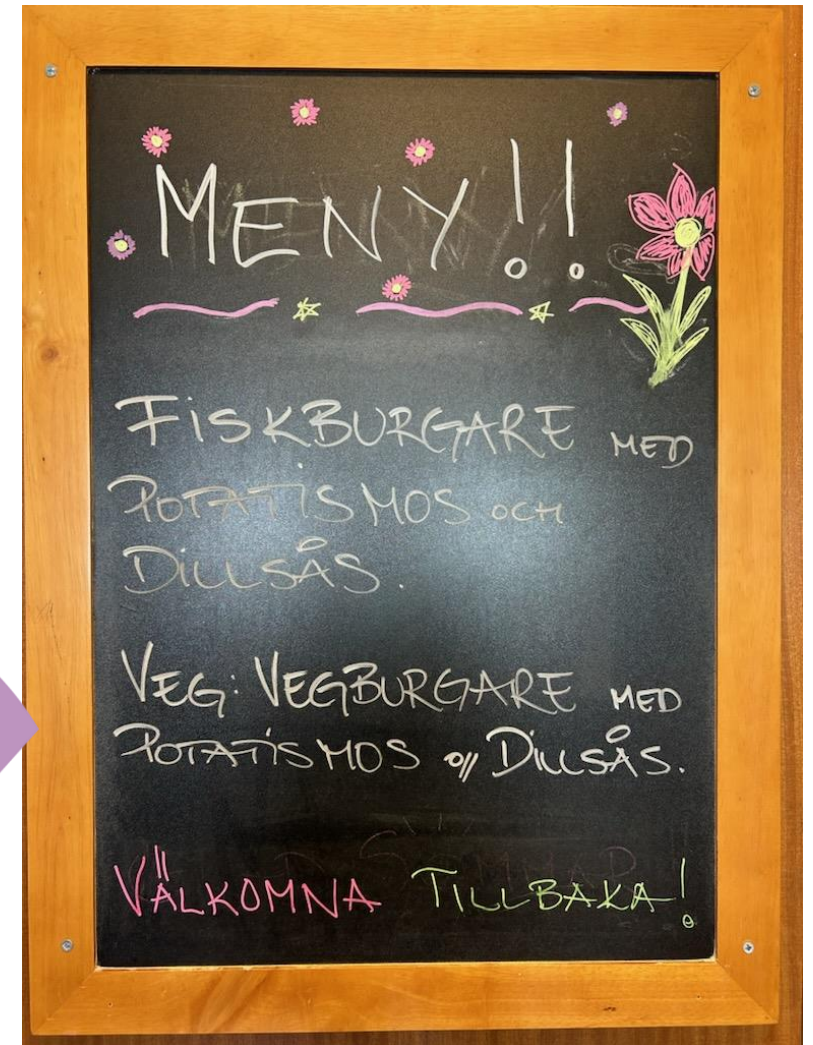 MENY!!
FISKBURGARE MED
POTATISMOS OCH
DILLSÅS.
VEG: VEGBURGARE MED
POTATISMOS o// DILLSÅS.
VÄLKOMNA TILLBAKA!